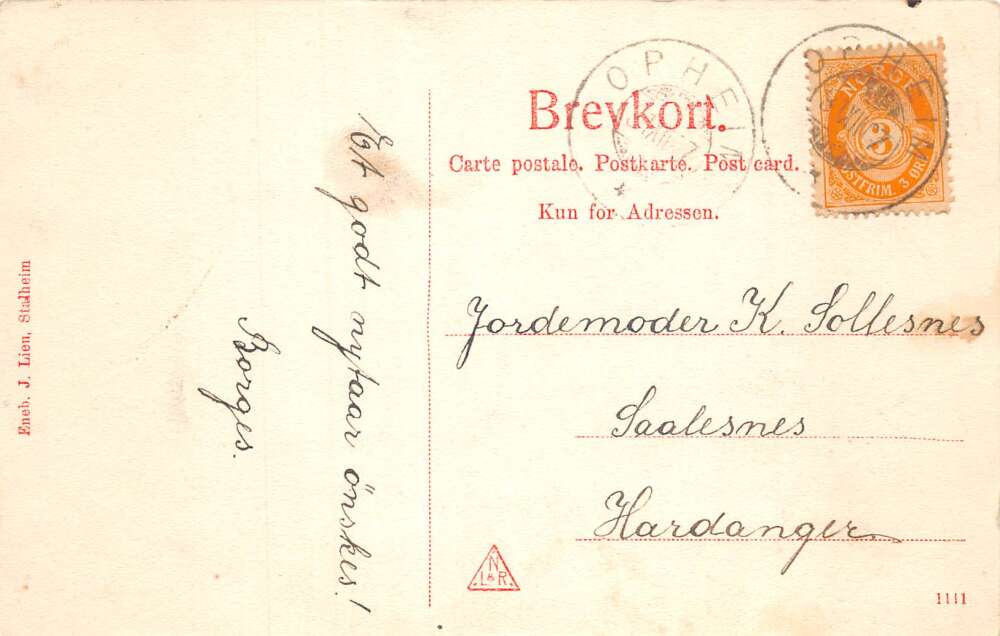 Brevkort.
Carte postale. Postkarte. Post card.
Kun for Adressen.
OPHEIM
OPHEIM
NORGE
3
POSTFRIM. 3 ØRE
Et godt nytaar önskes!
Borges.
Jordemoder K. Sollesnes
Saalesnes
Hardanger.
Eneb. J. Lien, Stalheim
N
L&R.
1111